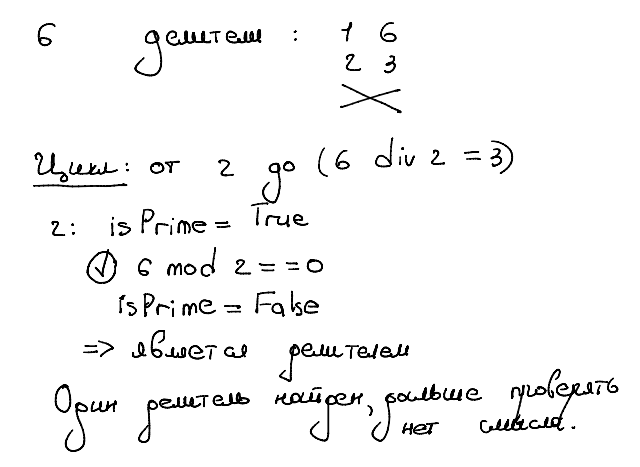 6 делители : 1 6
2 3
Цикл: от 2 до (6 div 2 = 3)
2: isPrime = True
6 mod 2 == 0
isPrime = False
=> является делителем
Один делитель найден, дальше проверять
нет смысла.